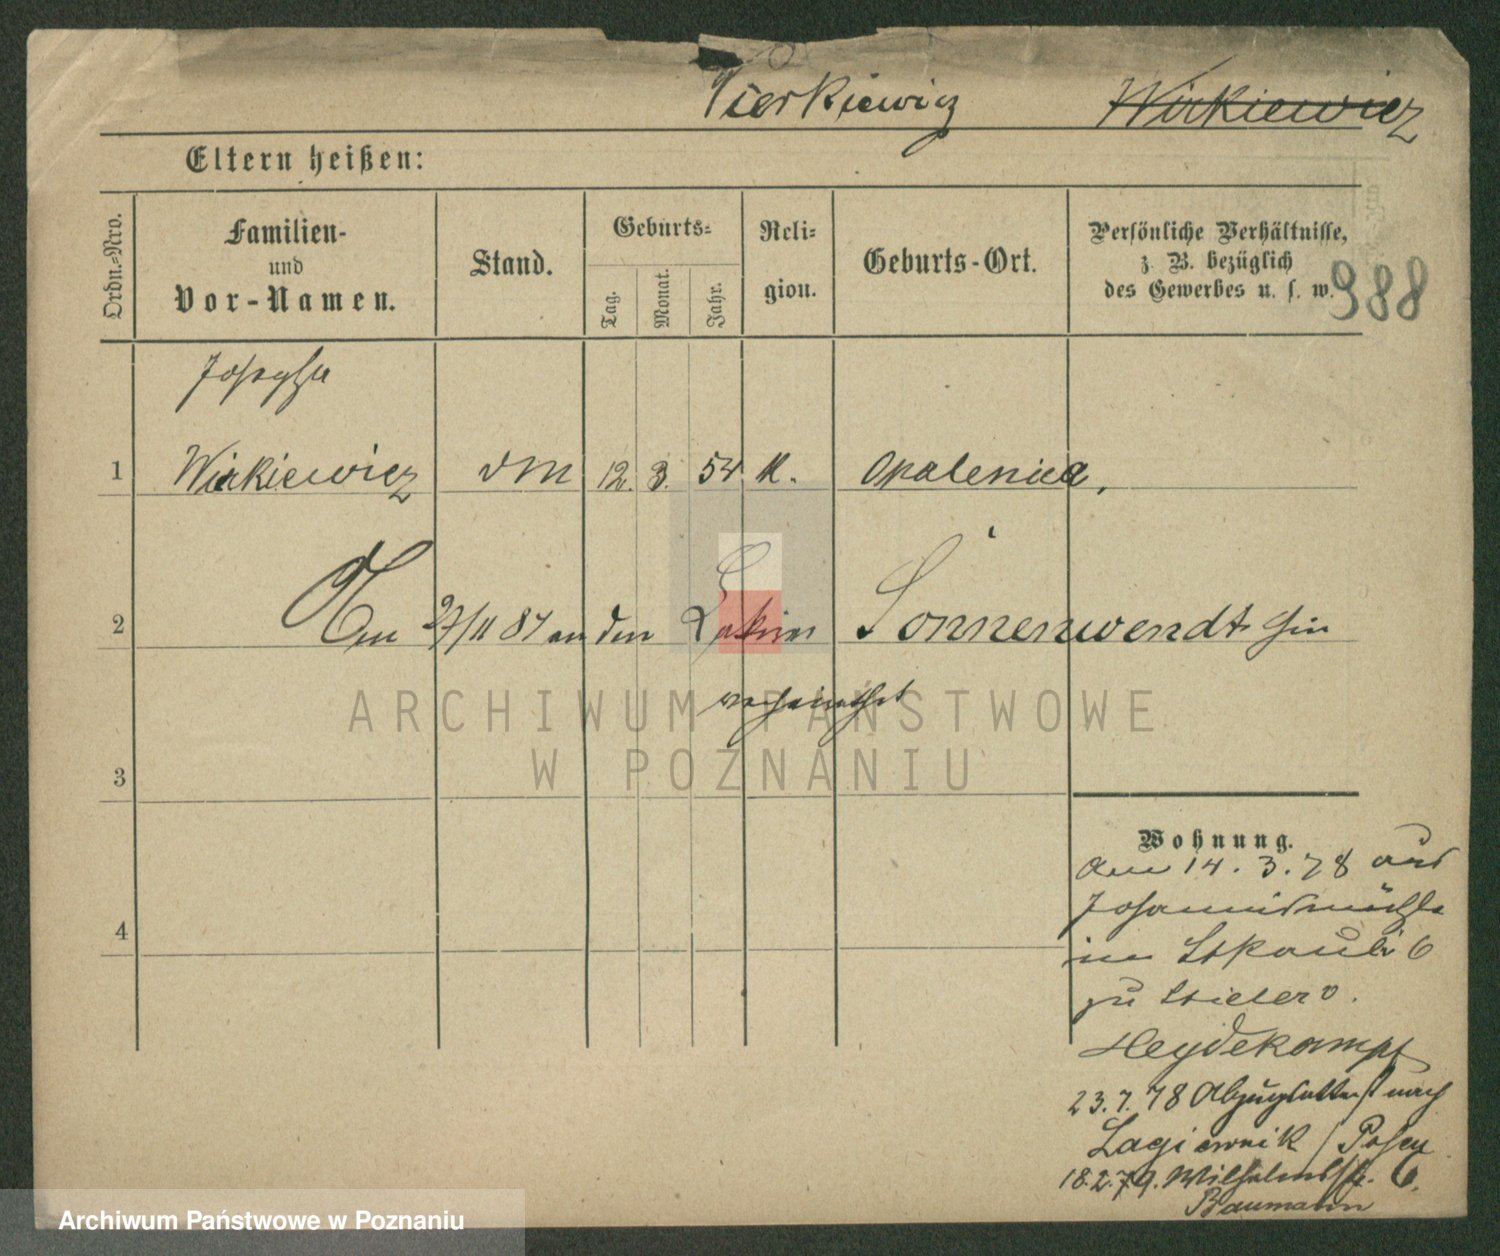 Wierkiewicz Wirkiewicz
Eltern heißen:
Ordn.-Nro.
Familien-
und
Vor-Namen.
Stand.
Geburts-
Tag.
Monat.
Jahr.
Reli-
gion.
Geburts-Ort.
Persönliche Verhältnisse,
z. B. bezüglich
des Gewerbes u. s. w.
988
Josepha
1 Wirkiewicz DM 12. 3. 54 K. Opalenica,
2 Am 27/11 81 an den Sonnenwendt hier
verheirathet
ARCHIWUM PAŃSTWOWE
W POZNANIU
3
4
Wohnung.
Am 14.3.78 aus
Johannismühle
in St Pauli 6
zu Stieler v.
Heydekampf
23.7.78 Abzugsattest nach
Lagiewnik / Posen
18.2.79. Wilhelmstr. 6.
Baumann
Archiwum Państwowe w Poznaniu